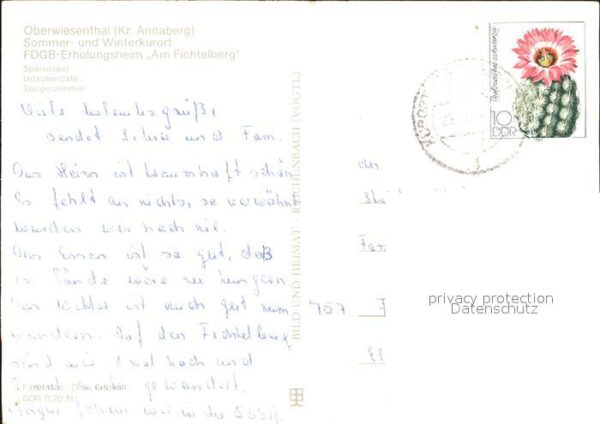 Oberwiesenthal (Kr. Annaberg)
Sommer- und Winterkurort
FDGB-Erholungsheim „Am Fichtelberg"
Speisesaal
Urlaubercafe
Steigerzimmer
Viele Urlaubsgrüße
sendet und Fam.
Das Heim ist traumhaft schön
Es fehlt an nichts, so verwöhnt
wurden wir noch nie.
Das Essen ist so gut, daß
es Sünde wäre zu hungern
Das Wetter ist auch gut zum
wandern. Auf den Fichtelberg
sind wir 1 mal hoch und
gewandert.
Morgen fahren wir in die ČSSR.
DDR 0,20 M
BILD UND HEIMAT · REICHENBACH (VOGTL)
KURORT
Thelocactus schwarzii
10
DDR
1983
757
privacy protection
Datenschutz